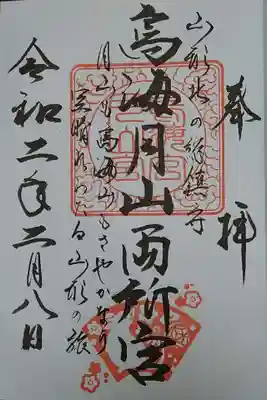 奉拝
山形北の総鎮守
鳥海月山両所宮
月山も鳥海山もさやかなり
晴れわたる山形の旅
令和二年二月八日